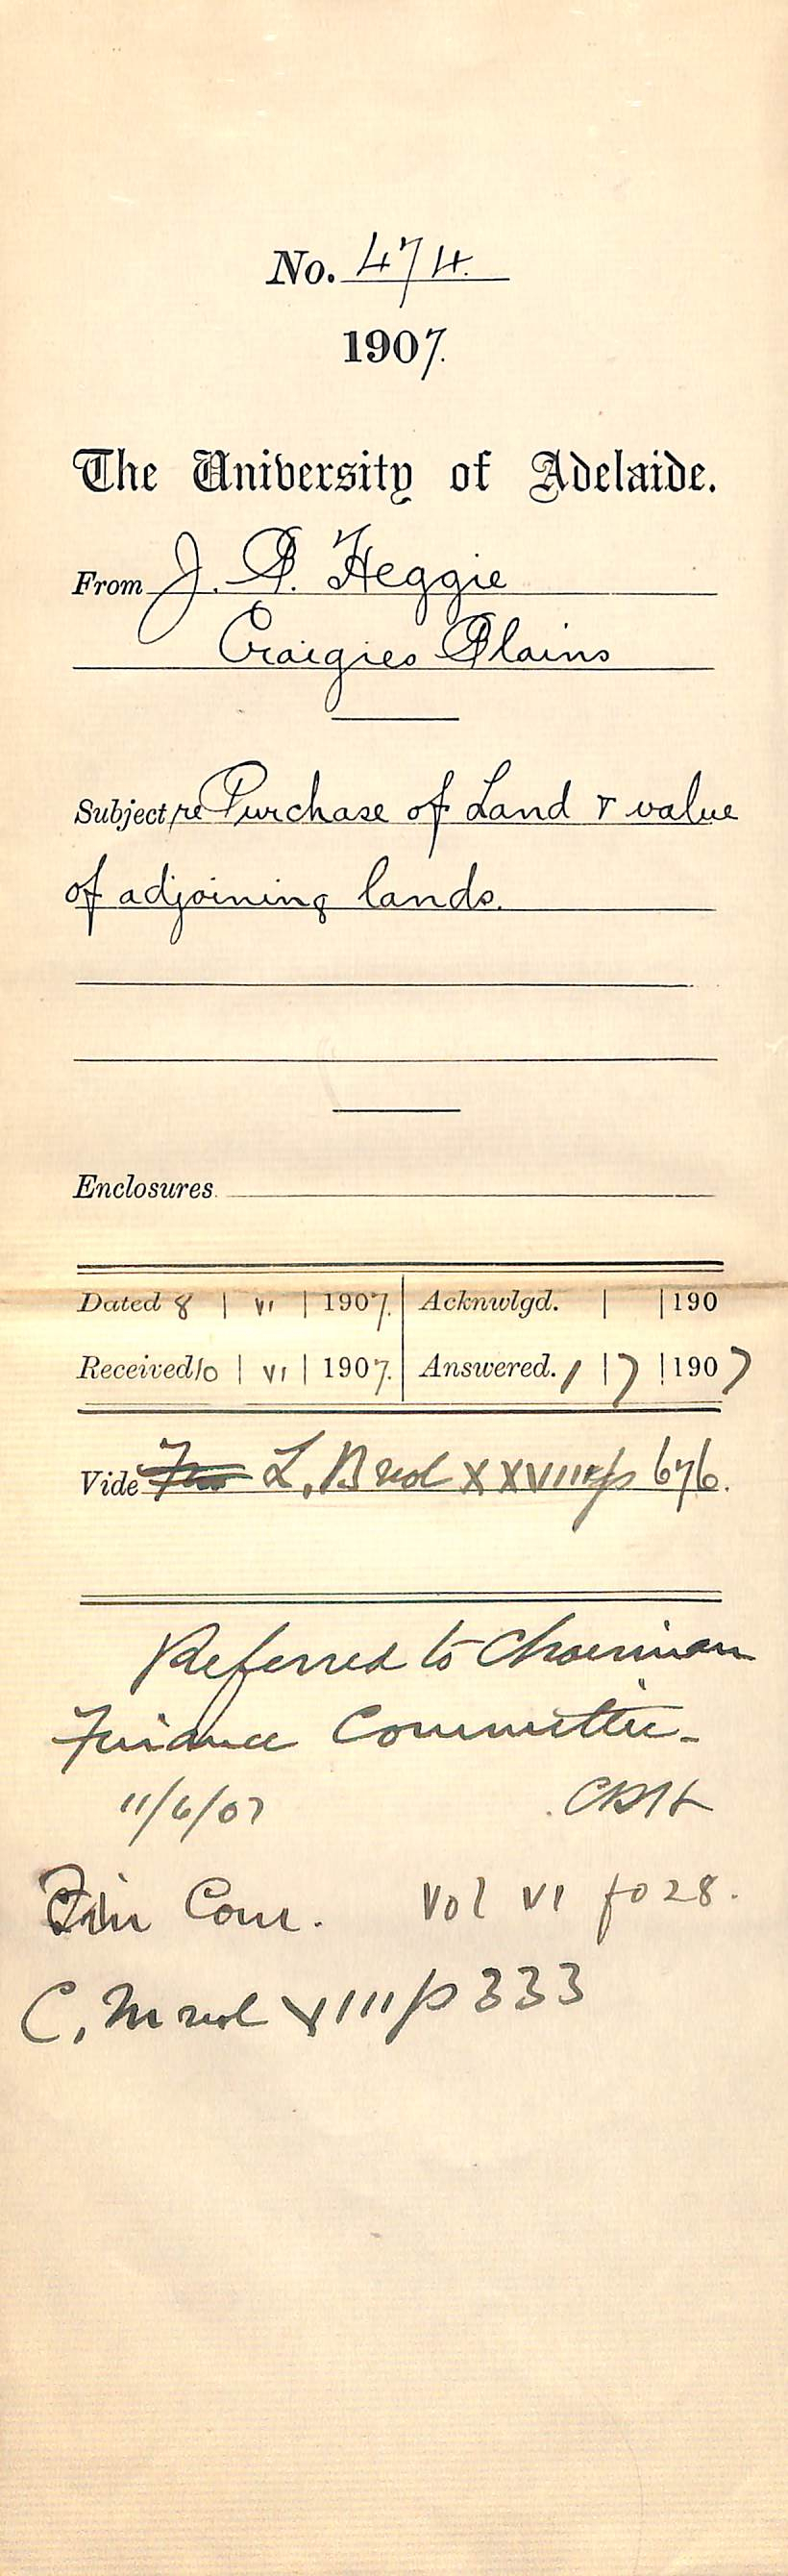 No. 474.
1907.
The University of Adelaide.
From J. P. Heggie
Craigies Plains
Subject re Purchase of Land & value
of adjoining lands.
Enclosures.
Dated 8 | VI | 1907. Acknwlgd. | | 190
Received 10 | VI | 1907. Answered. 1 | 7 | 1907
Vide L. B vol XXVIII p 676.
Referred to Chairman
Finance Committee -
11/6/07 CRH
Fin Com. Vol VI fo 28.
C. M vol VIII p 333